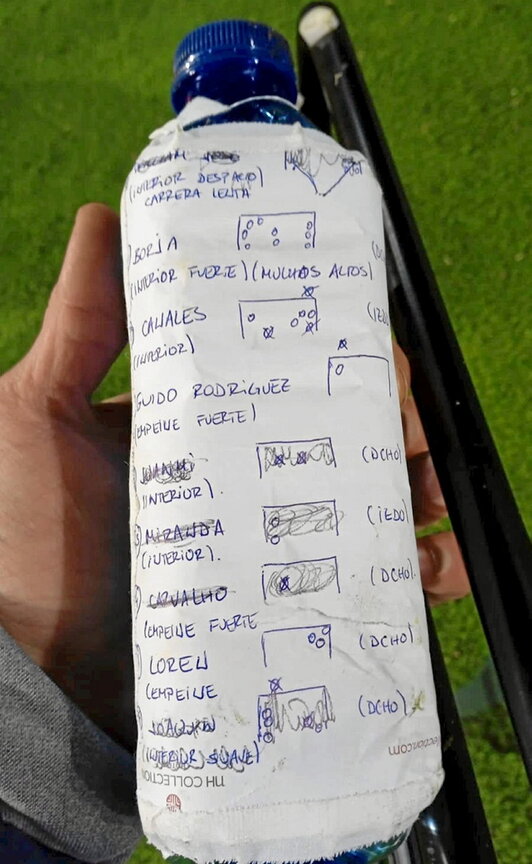 (INTERIOR DESPACIO)
CARRERA LENTA
BORJA
(INTERIOR FUERTE) (MUCHOS ALTOS)
CANALES
(INTERIOR)
GUIDO RODRIGUEZ
(EMPEINE FUERTE)
JUANMI (DCHO)
(INTERIOR).
MIRANDA (IZDO)
(INTERIOR).
CARVALHO (DCHO).
(EMPEINE FUERTE
LOREN (DCHO)
(EMPEINE
JOAQUIN (DCHO)
(INTERIOR SUAVE)
NH COLLECTION